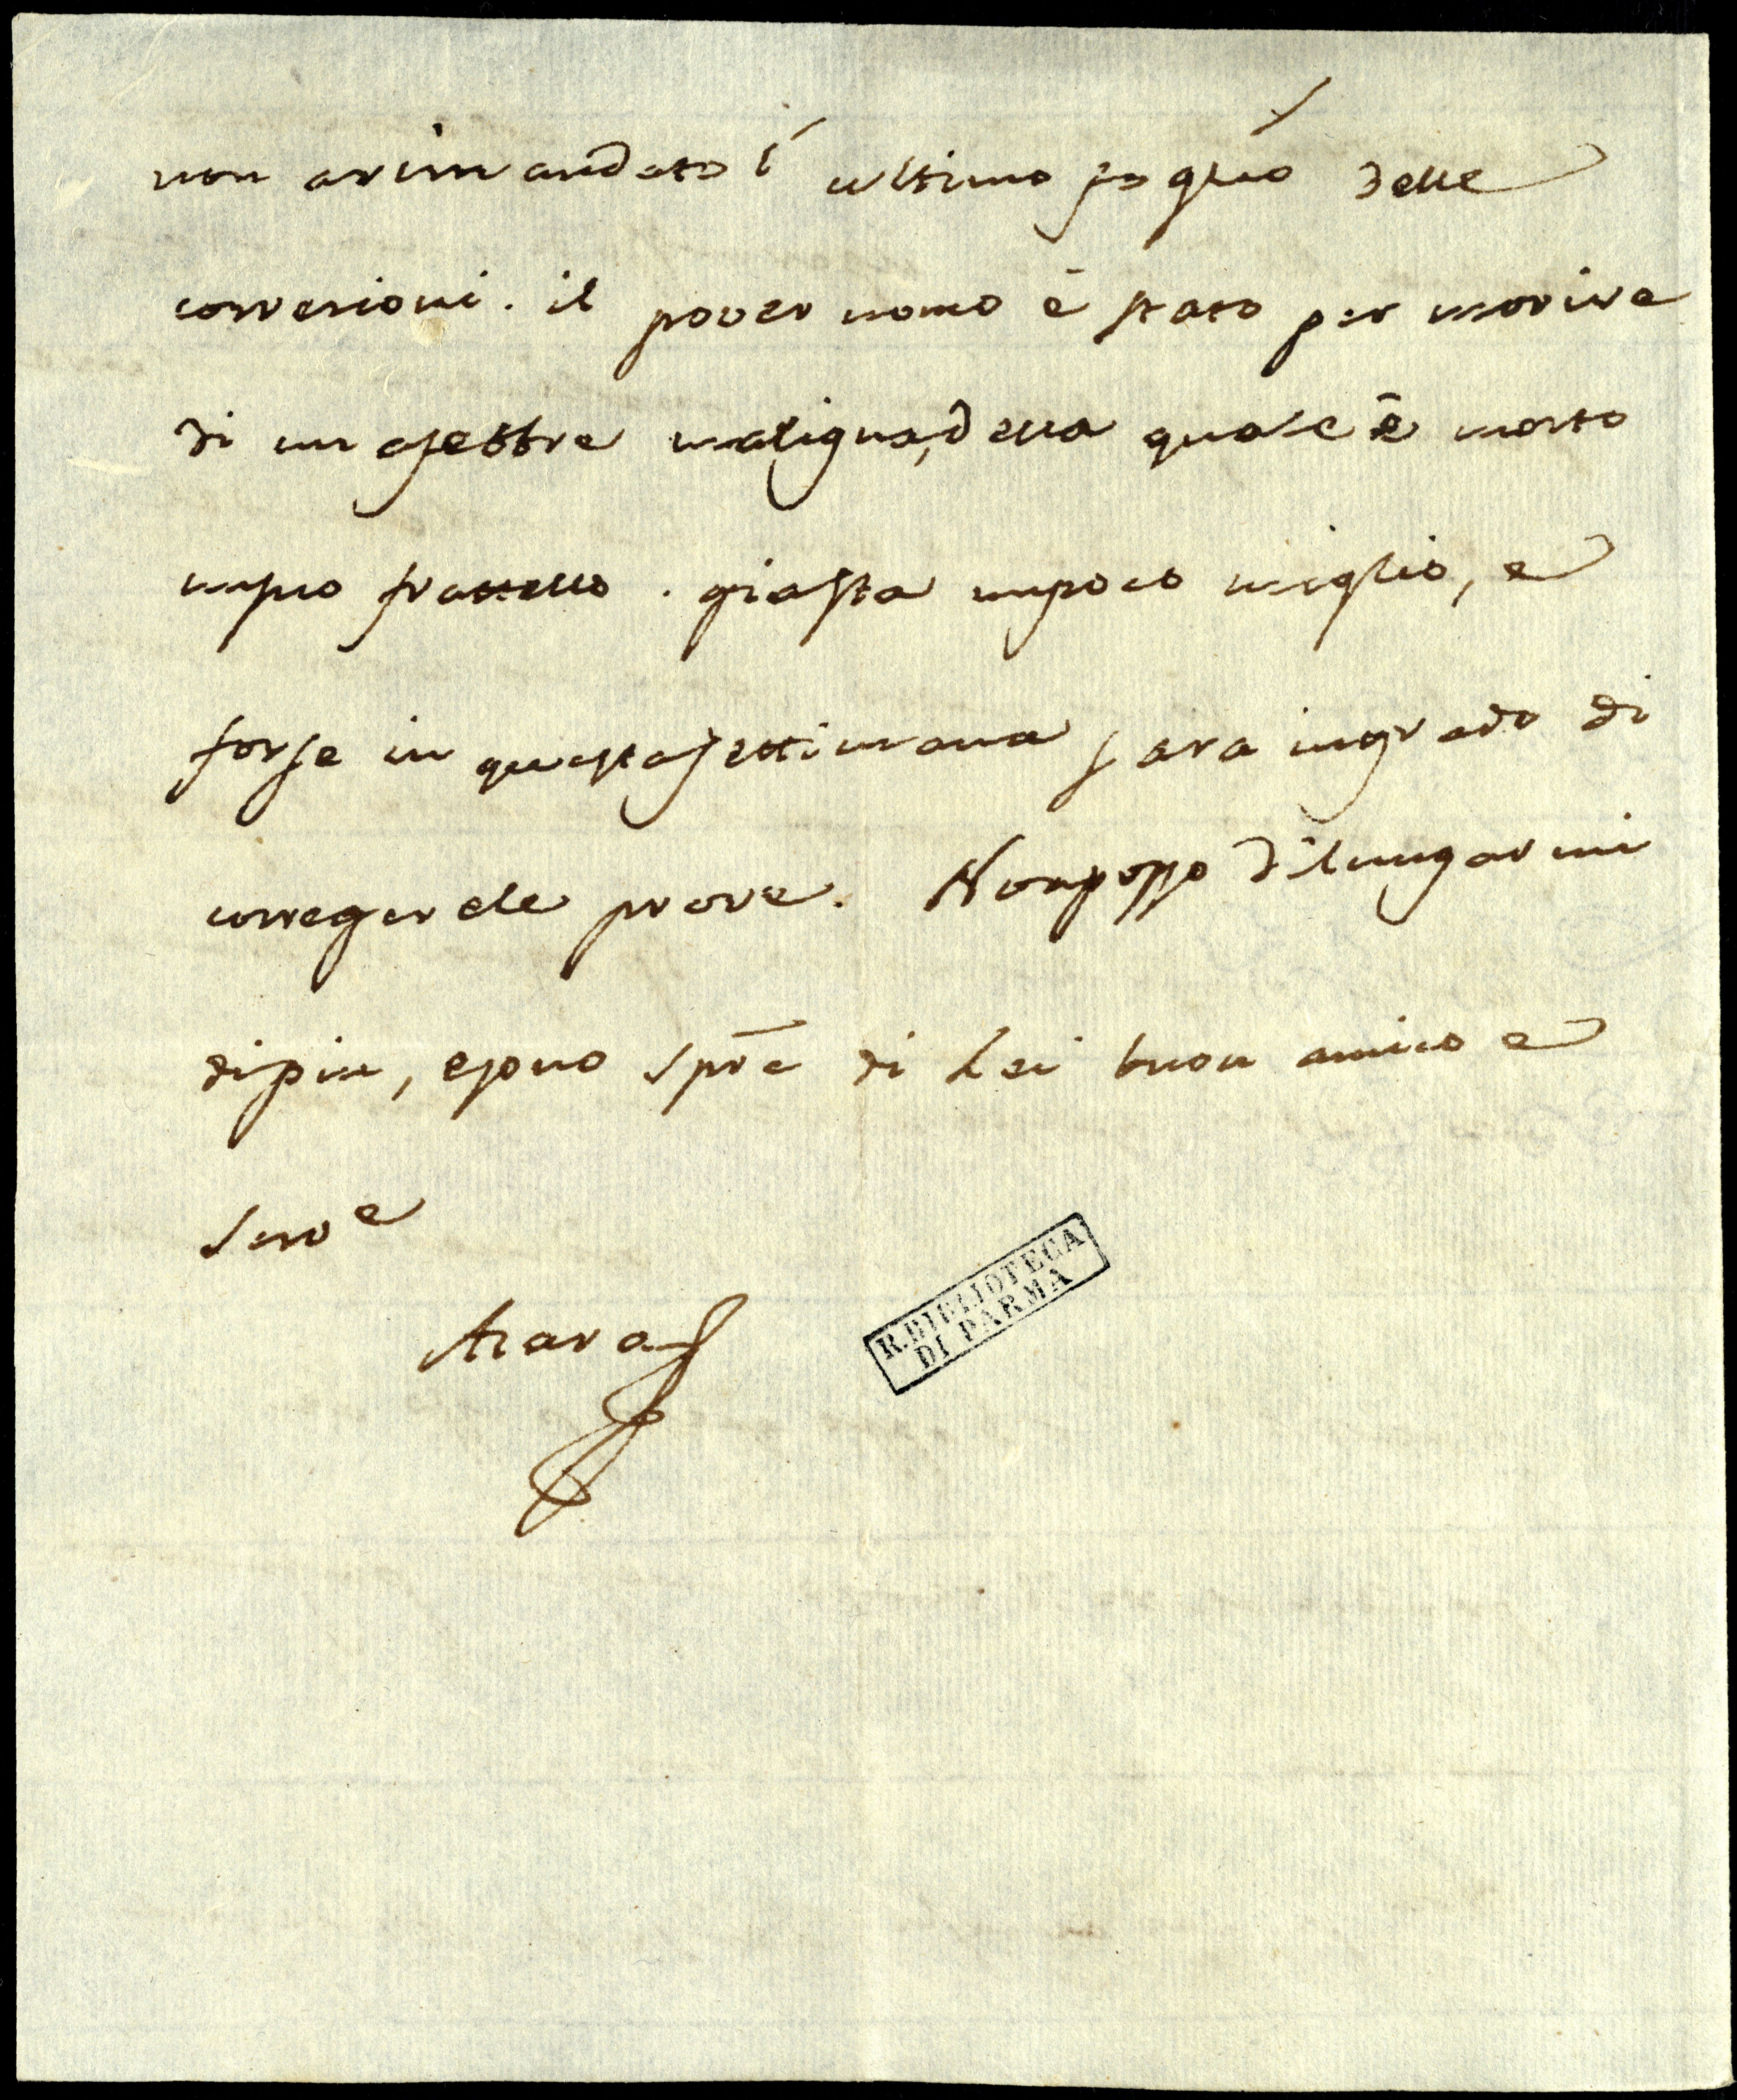 non arimandato l' ultimo foglio delle
corresioni. il pover uomo è stato per morire
di un afebbre maligna, della quale è morto
unsuo frattello. giasta unpoco meglio, e
forse in questasettimana sara ingrado di
corregerele prove. Nonposso dilungarmi
dipiu, esono spre di Lei buon amico e
Servе
Azara
R. BIBLIOTECA
DI PARMA